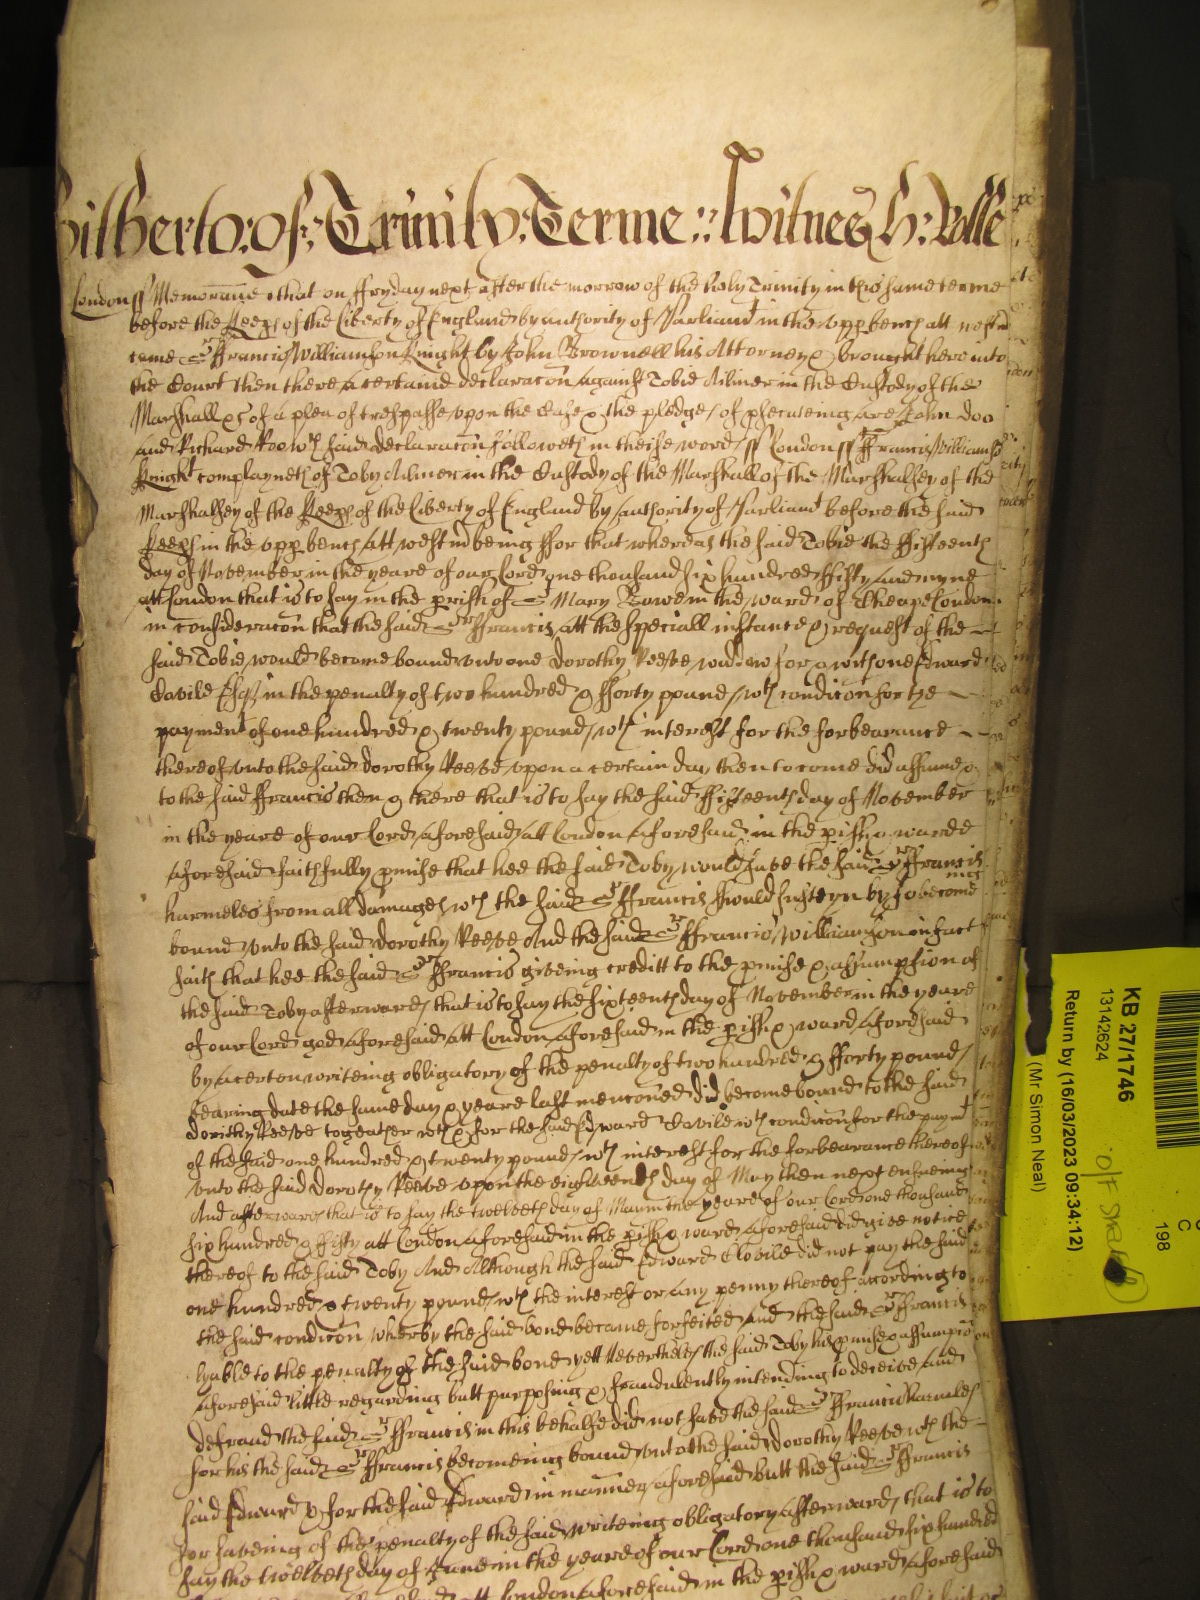 hitherto: of: Trinity: Terme :: Witnes H: Rolle
London ss Memorand that on ffryday next after the morrow of the holy Trinity in this same terme
before the Keeps of the Liberty of England by authority of Parliamt in the upp bench att westm
came Sr ffrancis Williamson Knight by John Brownell his Attorney & brought here into
the Court then there a certaine declaracon against Tobie Milner in the Custody of the
Marshall &c of a plea of trespasse upon the Case & the pledges of p'secuteing are John Doo
and Richard Roo wch said declaracon followeth in theise words ss London ss Sr ffrancis Williamson
Knight complayneth of Toby Milner in the Custody of the Marshall of the Marshalsey of the
Marshalsey of the Keeps of the Liberty of England by authority of Parliamt before the said
Keeps in the upp bench att westm being ffor that whereas the said Tobie the ffifteenth
day of November in the yeare of our Lord one thousand six hundred ffifty and nyne
att London that is to say in the p'ish of St Mary Bowe in the ward of Cheape London
in consideracon that the said Sr ffrancis att the speciall instance & request of the
said Tobie would become bound unto one Dorothy Reeve widdow for & with one Edward
Eovile Esqr in the penalty of two hundred & fforty pounds wth condicon for the
payment of one hundred & twenty pounds wth interest for the forbearance
thereof unto the said Dorothy Reeve upon a certain day then to come did assume &
to the said ffrancis then & there that is to say the said ffifteenth day of November
in the yeare of our Lord aforesaid att London aforesaid in the p'ish & warde
aforesaid faithfully p'mise that hee the said Toby would save the said Sr ffrancis
harmeles from all damages wch the said Sr ffrancis should susteyn by so becomeing
bound unto the said Dorothy Reeve And the said Sr ffrancis Williamson in fact
saith that hee the said Sr ffrancis giveing creditt to the p'mise & assumpsion of
the said Toby afterwards that is to say the sixteenth day of November in the yeare
of our Lord god aforesaid att London aforesaid in the p'ish & ward aforesaid
by a certen writeing obligatory of the penalty of two hundred & fforty pounds
bearing date the same day & yeare last menconed did become bound to the said
Dorithy Reeve togeather wth & for the said Edward Eovile wth condicon for the paymt
of the said one hundred & twenty pounds wth interest for the forbearance thereof
unto the said Dorothy Reeve upon the eighteenth day of May then next ensueing
And afterwards that is to say the twelveth day of May in the yeare of our Lord one thousand
six hundred & ffifty att London aforesaid in the p'ish & ward aforesaid did give notice
thereof to the said Toby And Although the said Edward Eovile did not pay the said
one hundred & twenty pounds wth the interest or any penny thereof according to
the said condicon wherby the said bond became forfeited and the said Sr ffrancis
lyable to the penalty of the said bond yett Nevertheles the said Toby his p'mise & assumpcon
aforesaid little regarding butt purposing & fraudulently intending to deceive and
defraud the said Sr ffrancis in this behalfe did not save the said Sr ffrancis harmeles
for his the said Sr ffrancis becomeing bound unto the said Dorothy Reeve wth the
said Edward & for the said Edward in manner aforesaid butt the said Sr ffrancis
for saveing of the penalty of the said writeing obligatory afterwards that is to
say the twelveth day of June in the yeare of our Lord one thousand six hundred
att London aforesaid in the p'ish & ward aforesaid
KB 27/1746
13142624
Return by (16/03/2023 09:34:12)
(Mr Simon Neal)
C
198